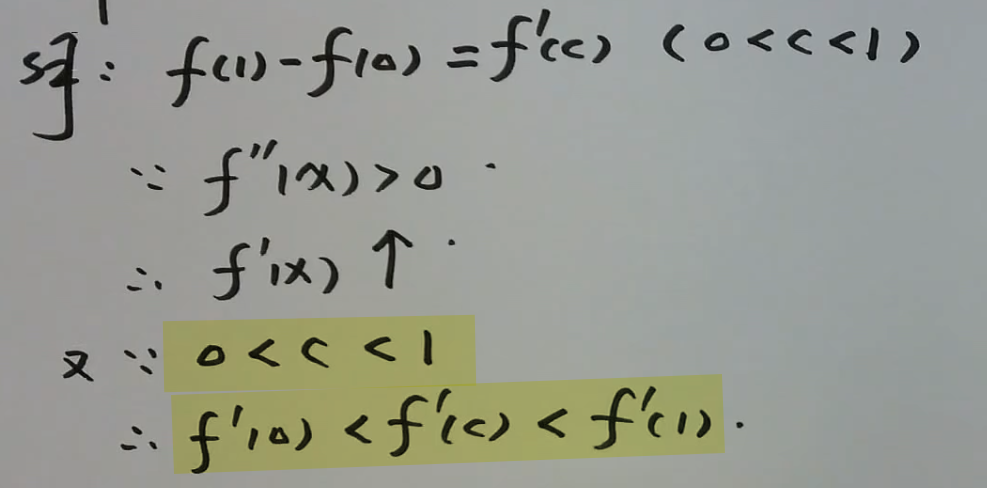 解: f(1)-f(0)=f'(c) (0<c<1)
∵ f''(x)>0.
∴ f'(x)↑.
又∵ 0<c<1
∴ f'(0)<f'(c)<f'(1).